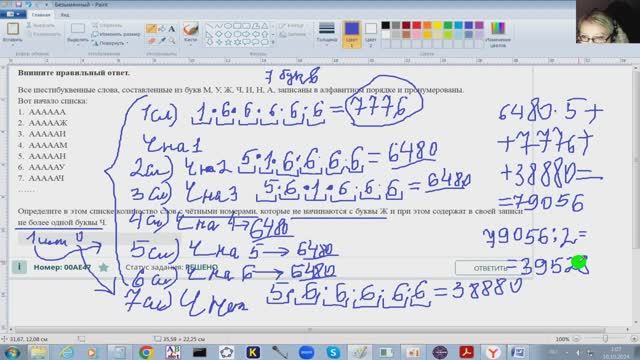 Безымянный - Paint
Впишите правильный ответ.
7 букв
Все шестибуквенные слова, составленные из букв М, У, Ж, Ч, И, Н, А, записаны в алфавитном порядке и пронумерованы.
Вот начало списка:
1. АААААА
2. АААААЖ
3. АААААИ
4. АААААМ
5. АААААН
6. АААААУ
7. АААААЧ
……
Определите в этом списке количество слов с чётными номерами, которые не начинаются с буквы Ж и при этом содержат в своей записи
не более одной буквы Ч.
1 или 0
Номер: 00AE47 Статус задания: РЕШЕНО
ОТВЕТИТЬ
1сл) 1·6·6·6·6·6=7776
Ч на 1
2сл) Ч на 2 5·1·6·6·6·6=6480
3сл) Ч на 3 5·6·1·6·6·6=6480
4сл) Ч на 4→6480
5сл) Ч на 5→6480
6сл) Ч на 6→6480
7сл) Ч нет 5·6·6·6·6·6=38880
6480·5+
+7776+
+38880=
=79056
79056:2=
=39528
31,67, 12,08 см
35,59 × 22,25 см
100%
10.10.2024